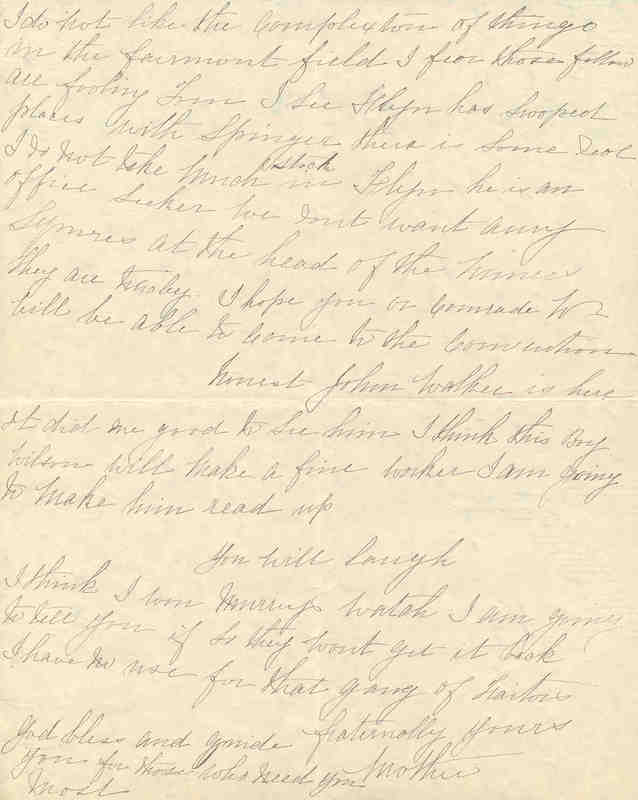 I do not like the Complexton of things
in the fairmont field I fear those fellows
are fooling Tom I see Flyn has swoped
places with Springer there is some deal
I do not take much stock in Flyn he is an
office Seeker We dont want anny
at the head of the Miners
they are I hope you or Comrade W
will be able to Come to the Convention
Honest John Walker is here
it did me good to see him I think this Boy
Wilson will make a fine worker I am going
to make him read up
You will laugh
I think I won Murrys watch I am going
to tell you if so they wont get it back
I have no use for that gang of traitors
God bless and guide fraternally yours
you for those who need you Mother
Most